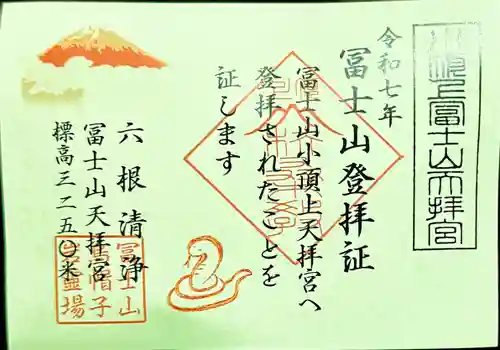 令和七年
冨士山登拝証
冨士山小頂上天拝宮へ
登拝されたことを
証します
六根清浄
冨士山天拝宮
標高三二五〇米
冨士山
烏帽子
岩霊場